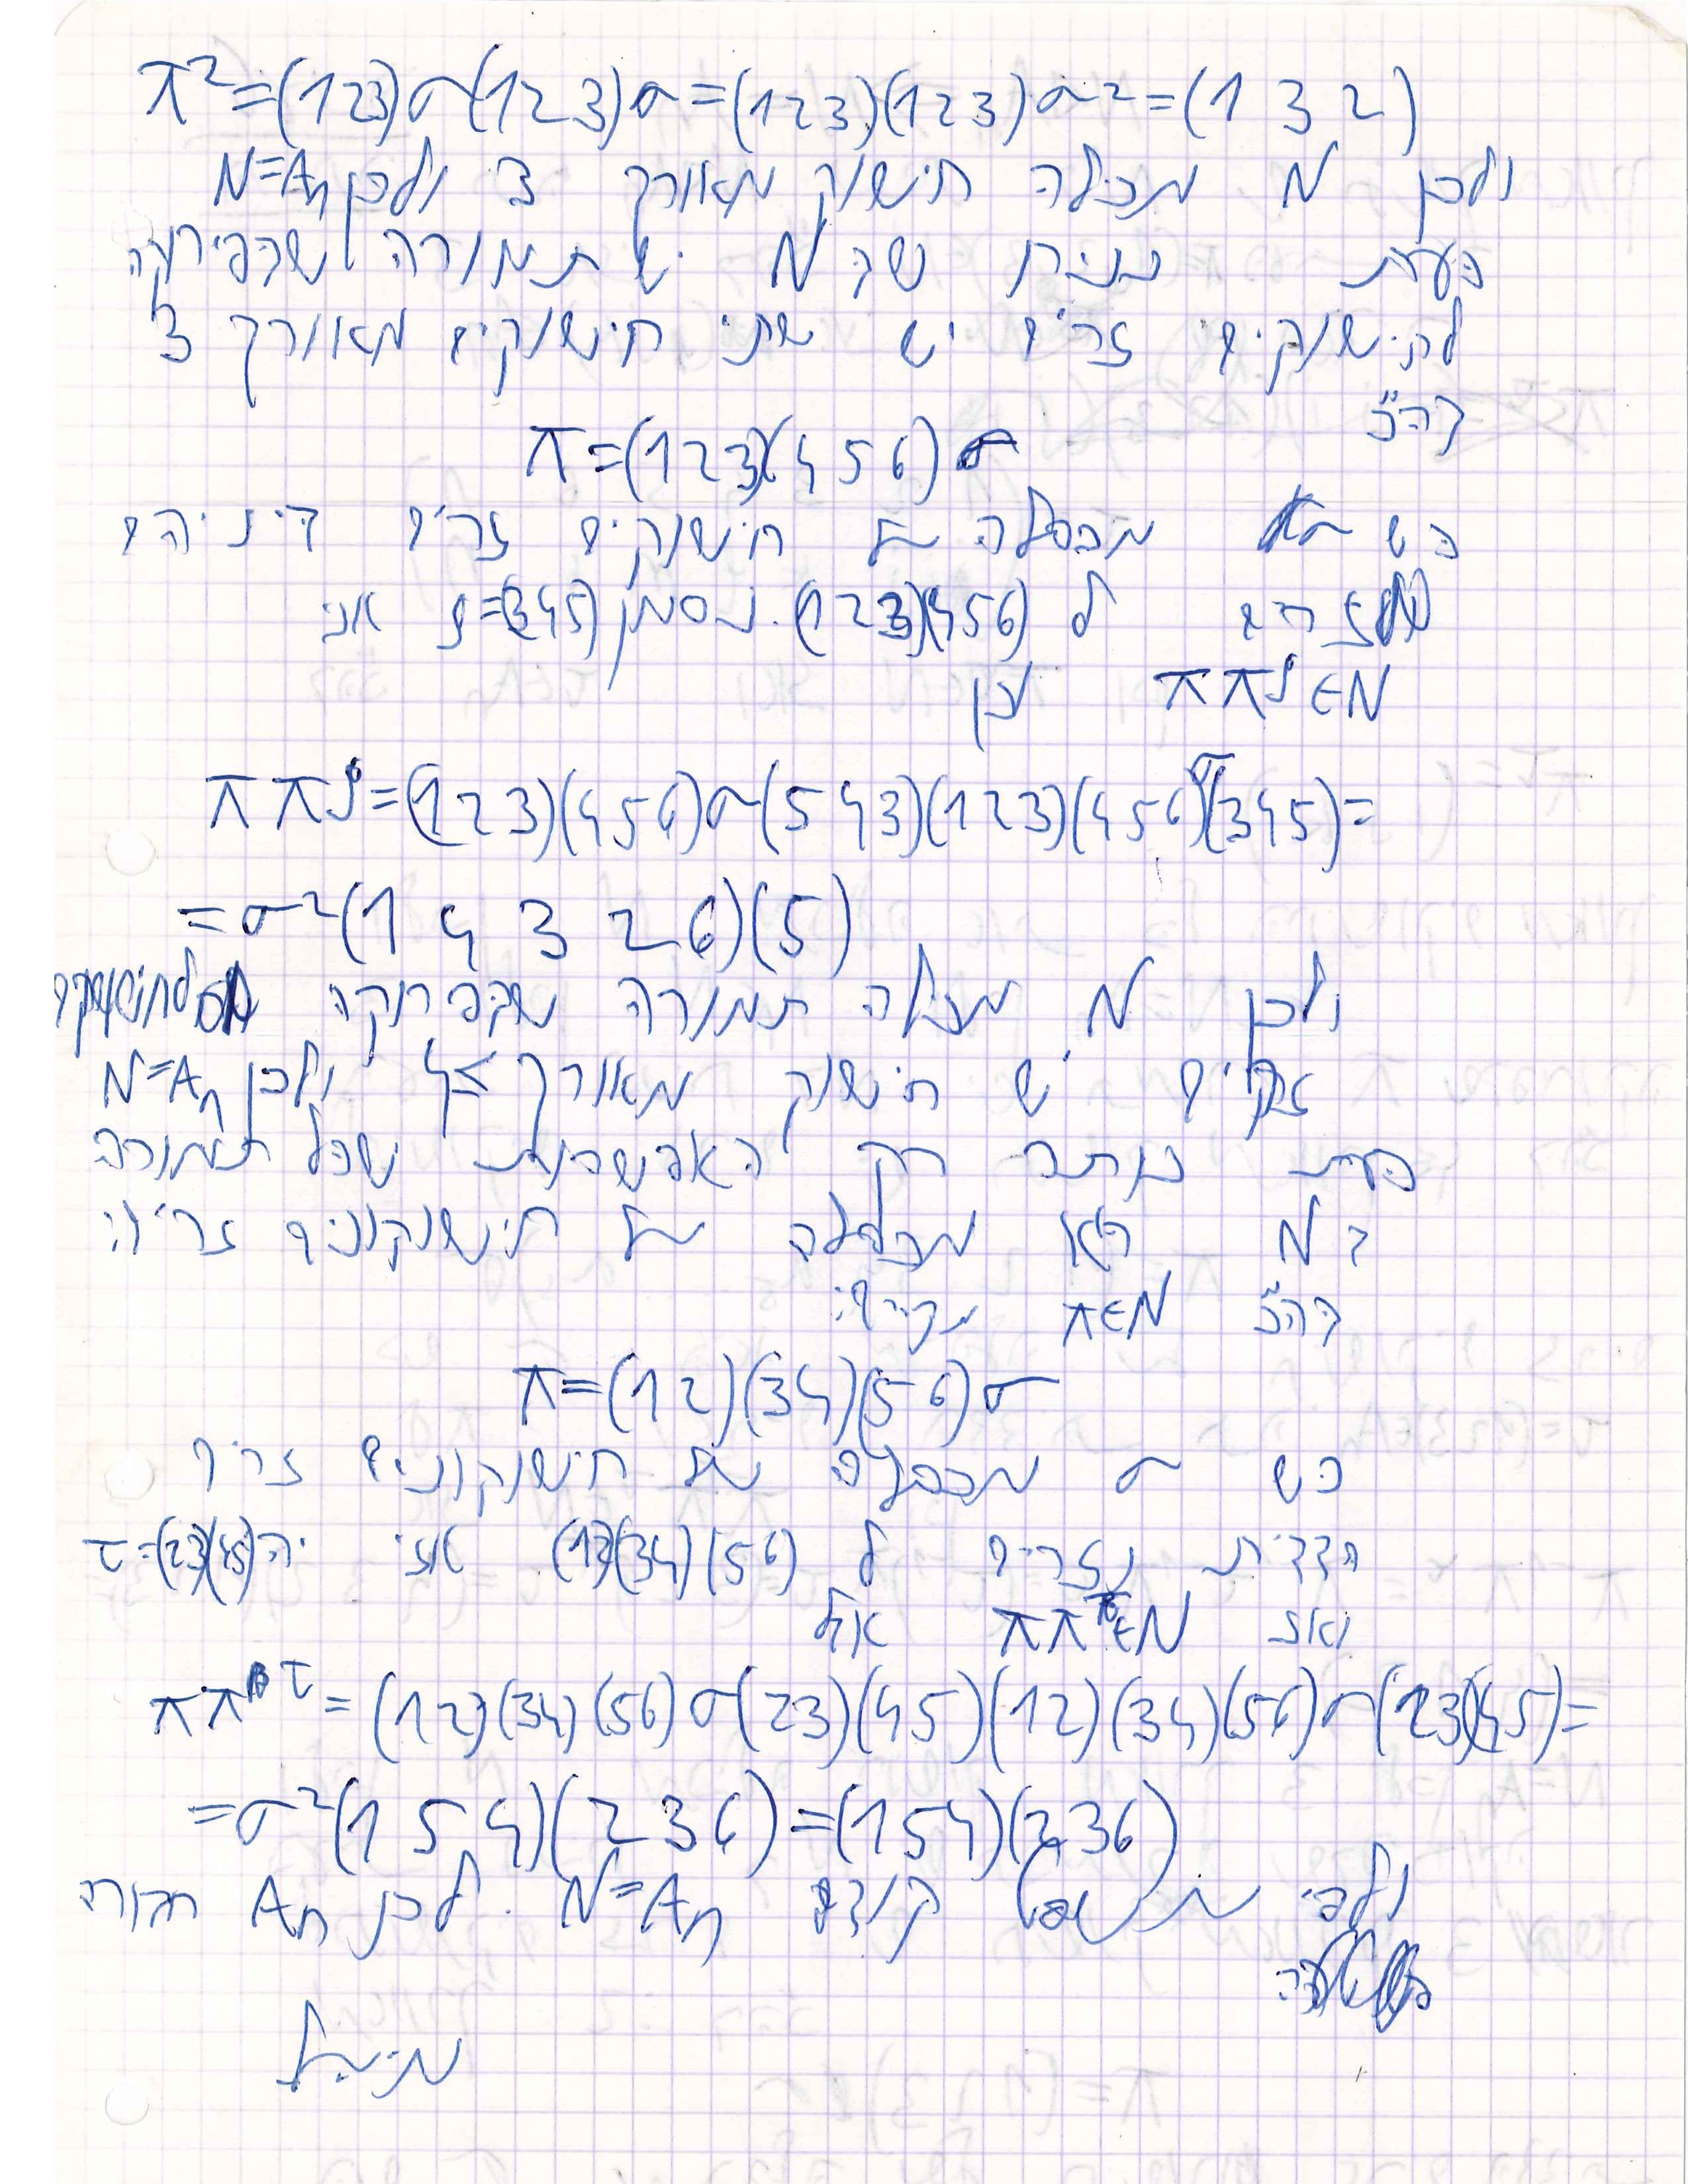 π²=(123)σ(123)σ=(123)(123)σ²=(1 3 2)
ולכן N מכילה חישוק מאורך 3 ולכן N=Aₙ
כעת נניח שב N יש תמורה שבפירוקה
לחישוקים זרים יש שתי חישוקים מאורך 3
בה"כ
π=(123)(456)σ
כש σ מכפלה של חישוקים זרים ביניהם
וזרים ל (123)(456). נסמן ρ=(345) אזי
ππ^ρ∈N לכן
ππ^ρ=(123)(456)σ(543)(123)(456)σ(345)=
=σ²(1 4 3 2 6)(5)
ולכן N מכילה תמורה שבפרוקה לחישוקים
זרים יש חישוק מאורך ≥4 ולכן N=Aₙ
כעת נותר רק האפשרות שכל תמורה
ב N היא מכפלה של חישוקונים זרים
בה"כ π∈N מקיים:
π=(12)(34)(56)σ
כש σ מכפלה של חישוקונים זרים
הדדית וזרים ל (12)(34)(56) אזי יהי τ=(23)(45)
ואז ππ^τ∈N אבל
ππ^τ=(12)(34)(56)σ(23)(45)(12)(34)(56)σ(23)(45)=
=σ²(1 5 4)(2 3 6)=(154)(236)
ולפי משפט קודם N=Aₙ. לכן Aₙ חבורה